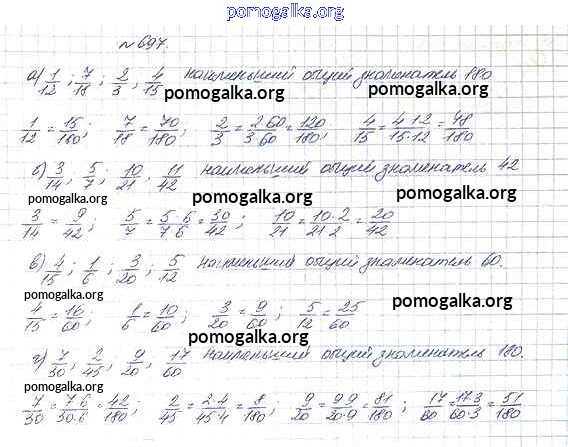 pomogalka.org
№697.
а) 1/12; 7/18; 2/3, 4/15 наименьший общий знаменатель 180
pomogalka.org pomogalka.org
1/12 = 15/180; 7/18 = 70/180; 2/3 = 2·60/3·60 = 120/180 4/15 = 4·12/15·12 = 48/180
б) 3/14, 5/7; 10/21, 11/42 наименьший общий знаменатель 42
pomogalka.org pomogalka.org pomogalka.org
3/14 = 9/42; 5/7 = 5·6/7·6 = 30/42; 10/21 = 10·2/21·2 = 20/42
в) 4/15; 1/6; 3/20; 5/12 наименьший общий знаменатель 60.
pomogalka.org pomogalka.org
4/15 = 16/60; 1/6 = 10/60; 3/20 = 9/60; 5/12 = 25/60
г) 7/30, 2/45; 9/20, 17/60 наименьший общий знаменатель 180.
pomogalka.org pomogalka.org
7/30 = 7·6/30·6 = 42/180; 2/45 = 2·4/45·4 = 8/180; 9/20 = 9·9/20·9 = 81/180; 17/60 = 17·3/60·3 = 51/180